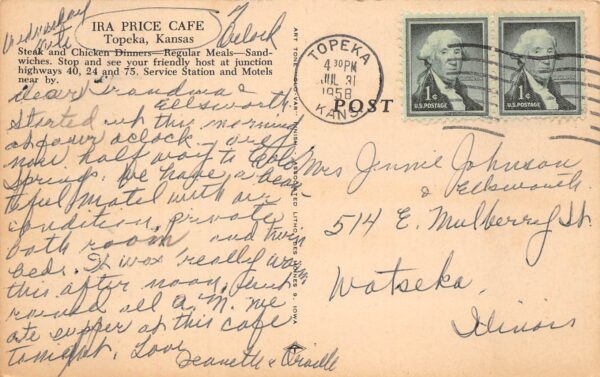 Wednesday
Nite
8 o'clock
IRA PRICE CAFE
Topeka, Kansas
Steak and Chicken Dinners—Regular Meals—Sand-
wiches. Stop and see your friendly host at junction
highways 40, 24 and 75. Service Station and Motels
near by.
Dear Grandma &
Ellsworth.
Started up this morning
at four oclock. are
now half way to
Springs. We have a beau-
tiful Motel with air
condition, private
bath room and twin
beds. It was really warm
this after noon, but
rained all A.M. We
ate supper at this cafe
tonight. Love
Jeanette & Orville
TOPEKA
4 30 PM
JUL 31
1958
KANS.
POST
1¢
U.S. POSTAGE
1¢
U.S. POSTAGE
Mrs Jennie Johnson
& Ellsworth
514 E. Mulberry St.
Watseka,
Illinois